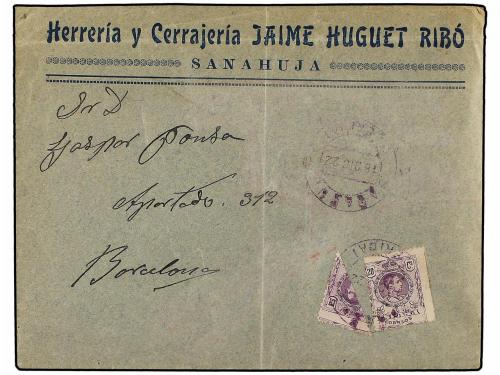 Herrería y Cerrajería JAIME HUGUET RIBÓ
SANAHUJA
Sr D
Gaspar Ponsa
Apartado. 312
Barcelona
20 Cs
CORREOS